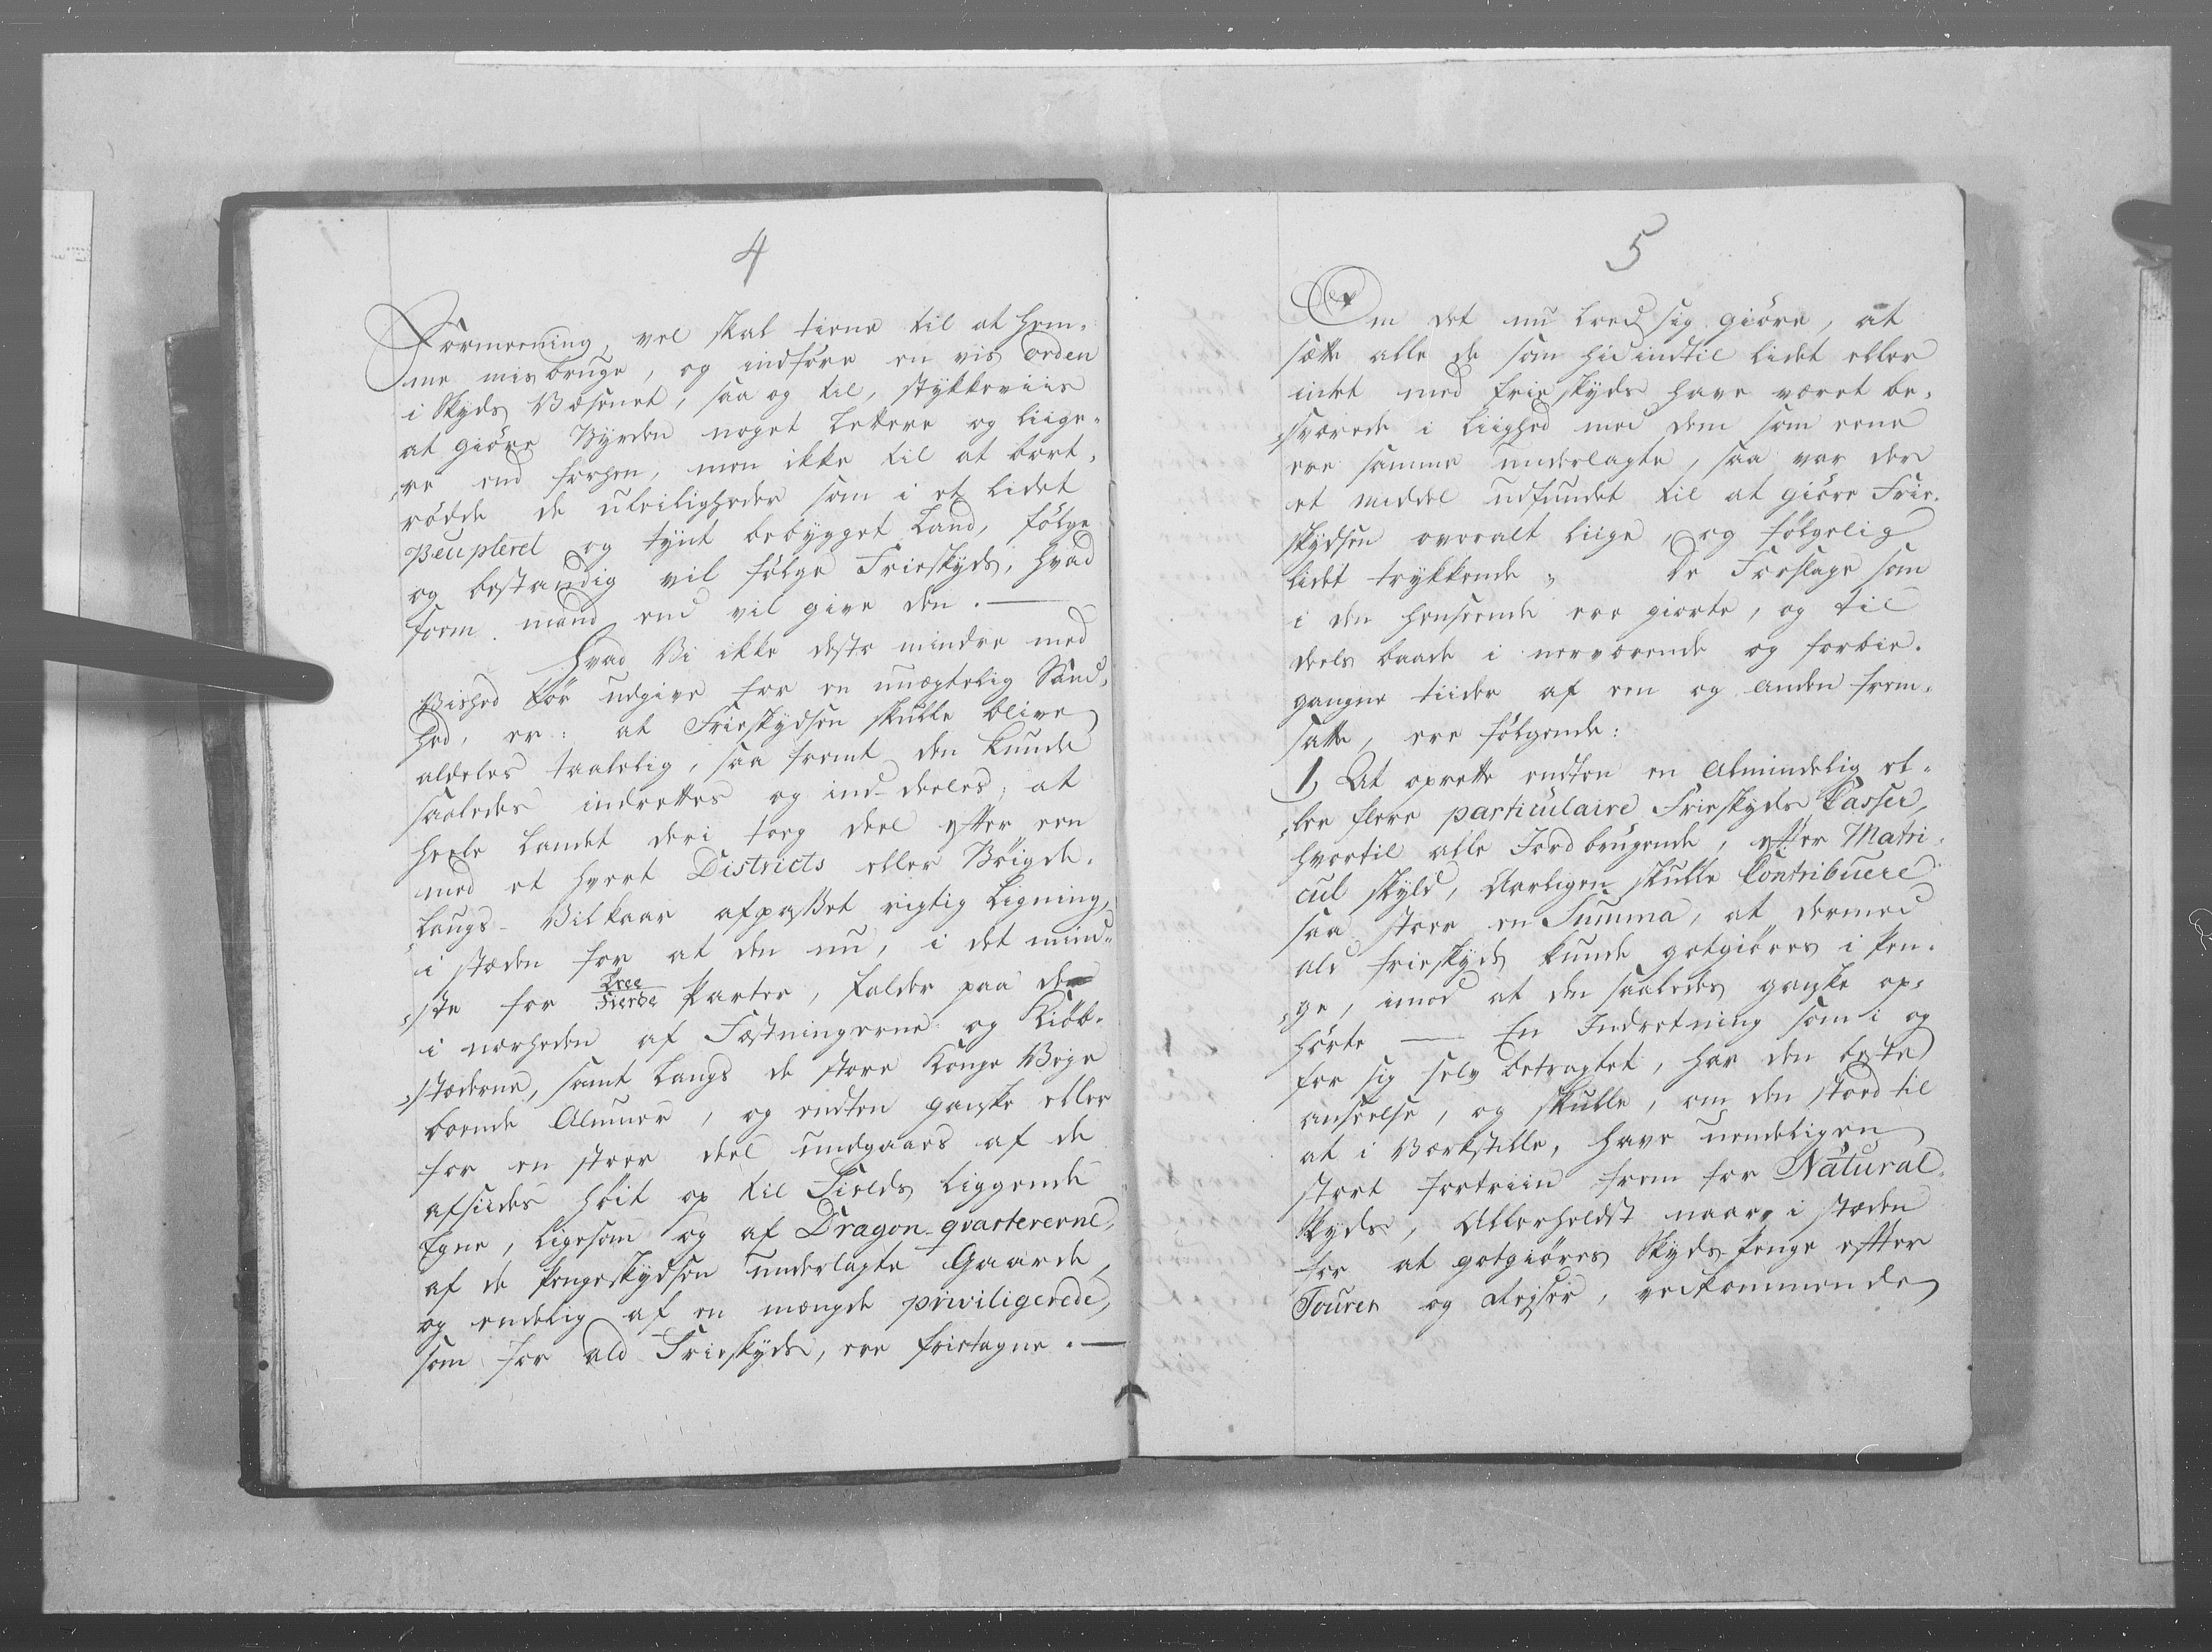 4
Formeening, vel skal tiene til at hem-
me misbruge, og indføre en vis orden
i Skyds Væsenet, saa og til, stykkeviis
at giöre Byrden noget Lettere og liige-
re end forhen, men ikke til at bort-
rödde de uleiligheder som i et lidet
Peupleret og tynt bebygget Land, følge
og bestandig vil fölge Frieskyds, hvad
form mand end vil give den. —
Hvad Vi ikke desto mindre med
Vished tör udgive for en unægtelig Sand-
hed, er: at Frieskydsen skulle blive
aldeles taalelig, saa fremt den kunde
saaledes indrettes og ind-deeles, at
heele Landet deri tog deel efter een
med et hvert Districts eller Böigde-
Laugs- Vilkaar afpasset rigtig Ligning,
i stæden for at den nu, i det mind-
ste for Tree Fierde Parter, falder paa de
i nærheden af Fæstningerne og Kiöb-
stæderne, samt Langs de store Konge Veye
boende Almuer, og endten ganske eller
for en stoer deel undgaaes af de
afsiides höit op til Fields Liggende
Egne, ligesom og af Dragon-qvartererne,
af de Pengeskydsen underlagte Gaarde,
og endelig af en mængde priviligerede,
som for ald Frieskyds, ere frietagne. —
5
Om det nu lod sig giöre, at
sætte alle de som hidindtil lidet eller
intet med frie skyds have været be-
sværede i Liighed med dem som eene
ere samme underlagte, saa var der
et middel udfundet til at giöre Frie-
skydsen overalt liige, og fölgelig
lidet trykkende; De Forslage som
i den henseende ere giorte, og til
deels baade i nerværende og forbie-
gangne tiider af een og anden frem-
satte, ere fölgende:
1, At oprette endten en Almindelig el-
ler flere particulaire Frieskyds Casser,
hvortil alle Jordbrugende, efter Matri-
cul skyld, Aarligen skulle Contribuere
saa stoer en Summa, at dermed
ald frieskyds kunde godtgiöres i Pen-
ge, imod at den saaledes ganske op-
hörte — En Indretning som i og
for sig selv betragtet, har den beste
anseelse, og skulle, om den stoed til
at i Værkstille, have uendeligen
stort fortriin frem for Natural-
Skyds, Allerhelst naar i stæden
for at godtgiöres Skyds-Penge efter
Tourer og Reyser, vedkommende